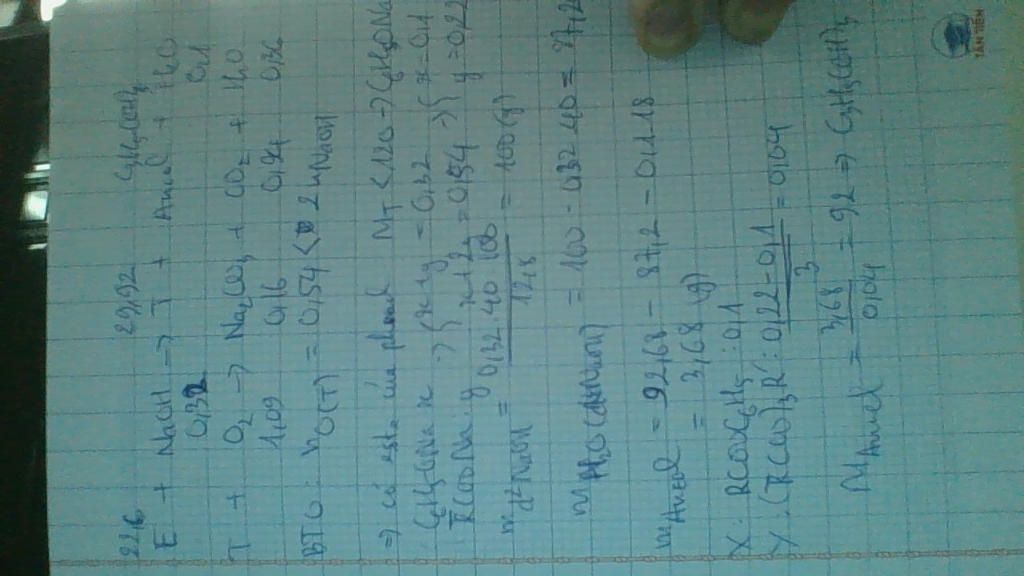 22,16 29,92 C3H5(OH)3
E + NaOH → T + Ancol + H2O
0,32 0,1
T + O2 → Na2CO3 + CO2 + H2O
1,09 0,16 0,94 0,36
BTO: nO(T) = 0,54 < 2 nNaOH
=> có este của phenol MT < 120 → C6H5ONa
C6H5ONa x → { x + y = 0,32 → { x = 0,1
RCOONa y { x + 2y = 0,54 y = 0,22
m d2 NaOH = 0,32.40.100 / 12,8 = 100(g)
mH2O (dd NaOH) = 100 - 0,32.40 = 87,2
mAncol = 92,68 - 87,2 - 0,1.18
= 3,68 (g)
X: RCOOC6H5 : 0,1
Y: (RCOO)3R' : 0,22 - 0,1 / 3 = 0,04
MAncol = 3,68 / 0,04 = 92 => C3H5(OH)3
TÂN TIẾN